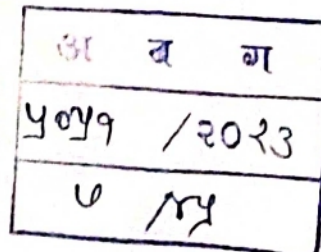 अ ब ग
५०५१ /२०२३
७